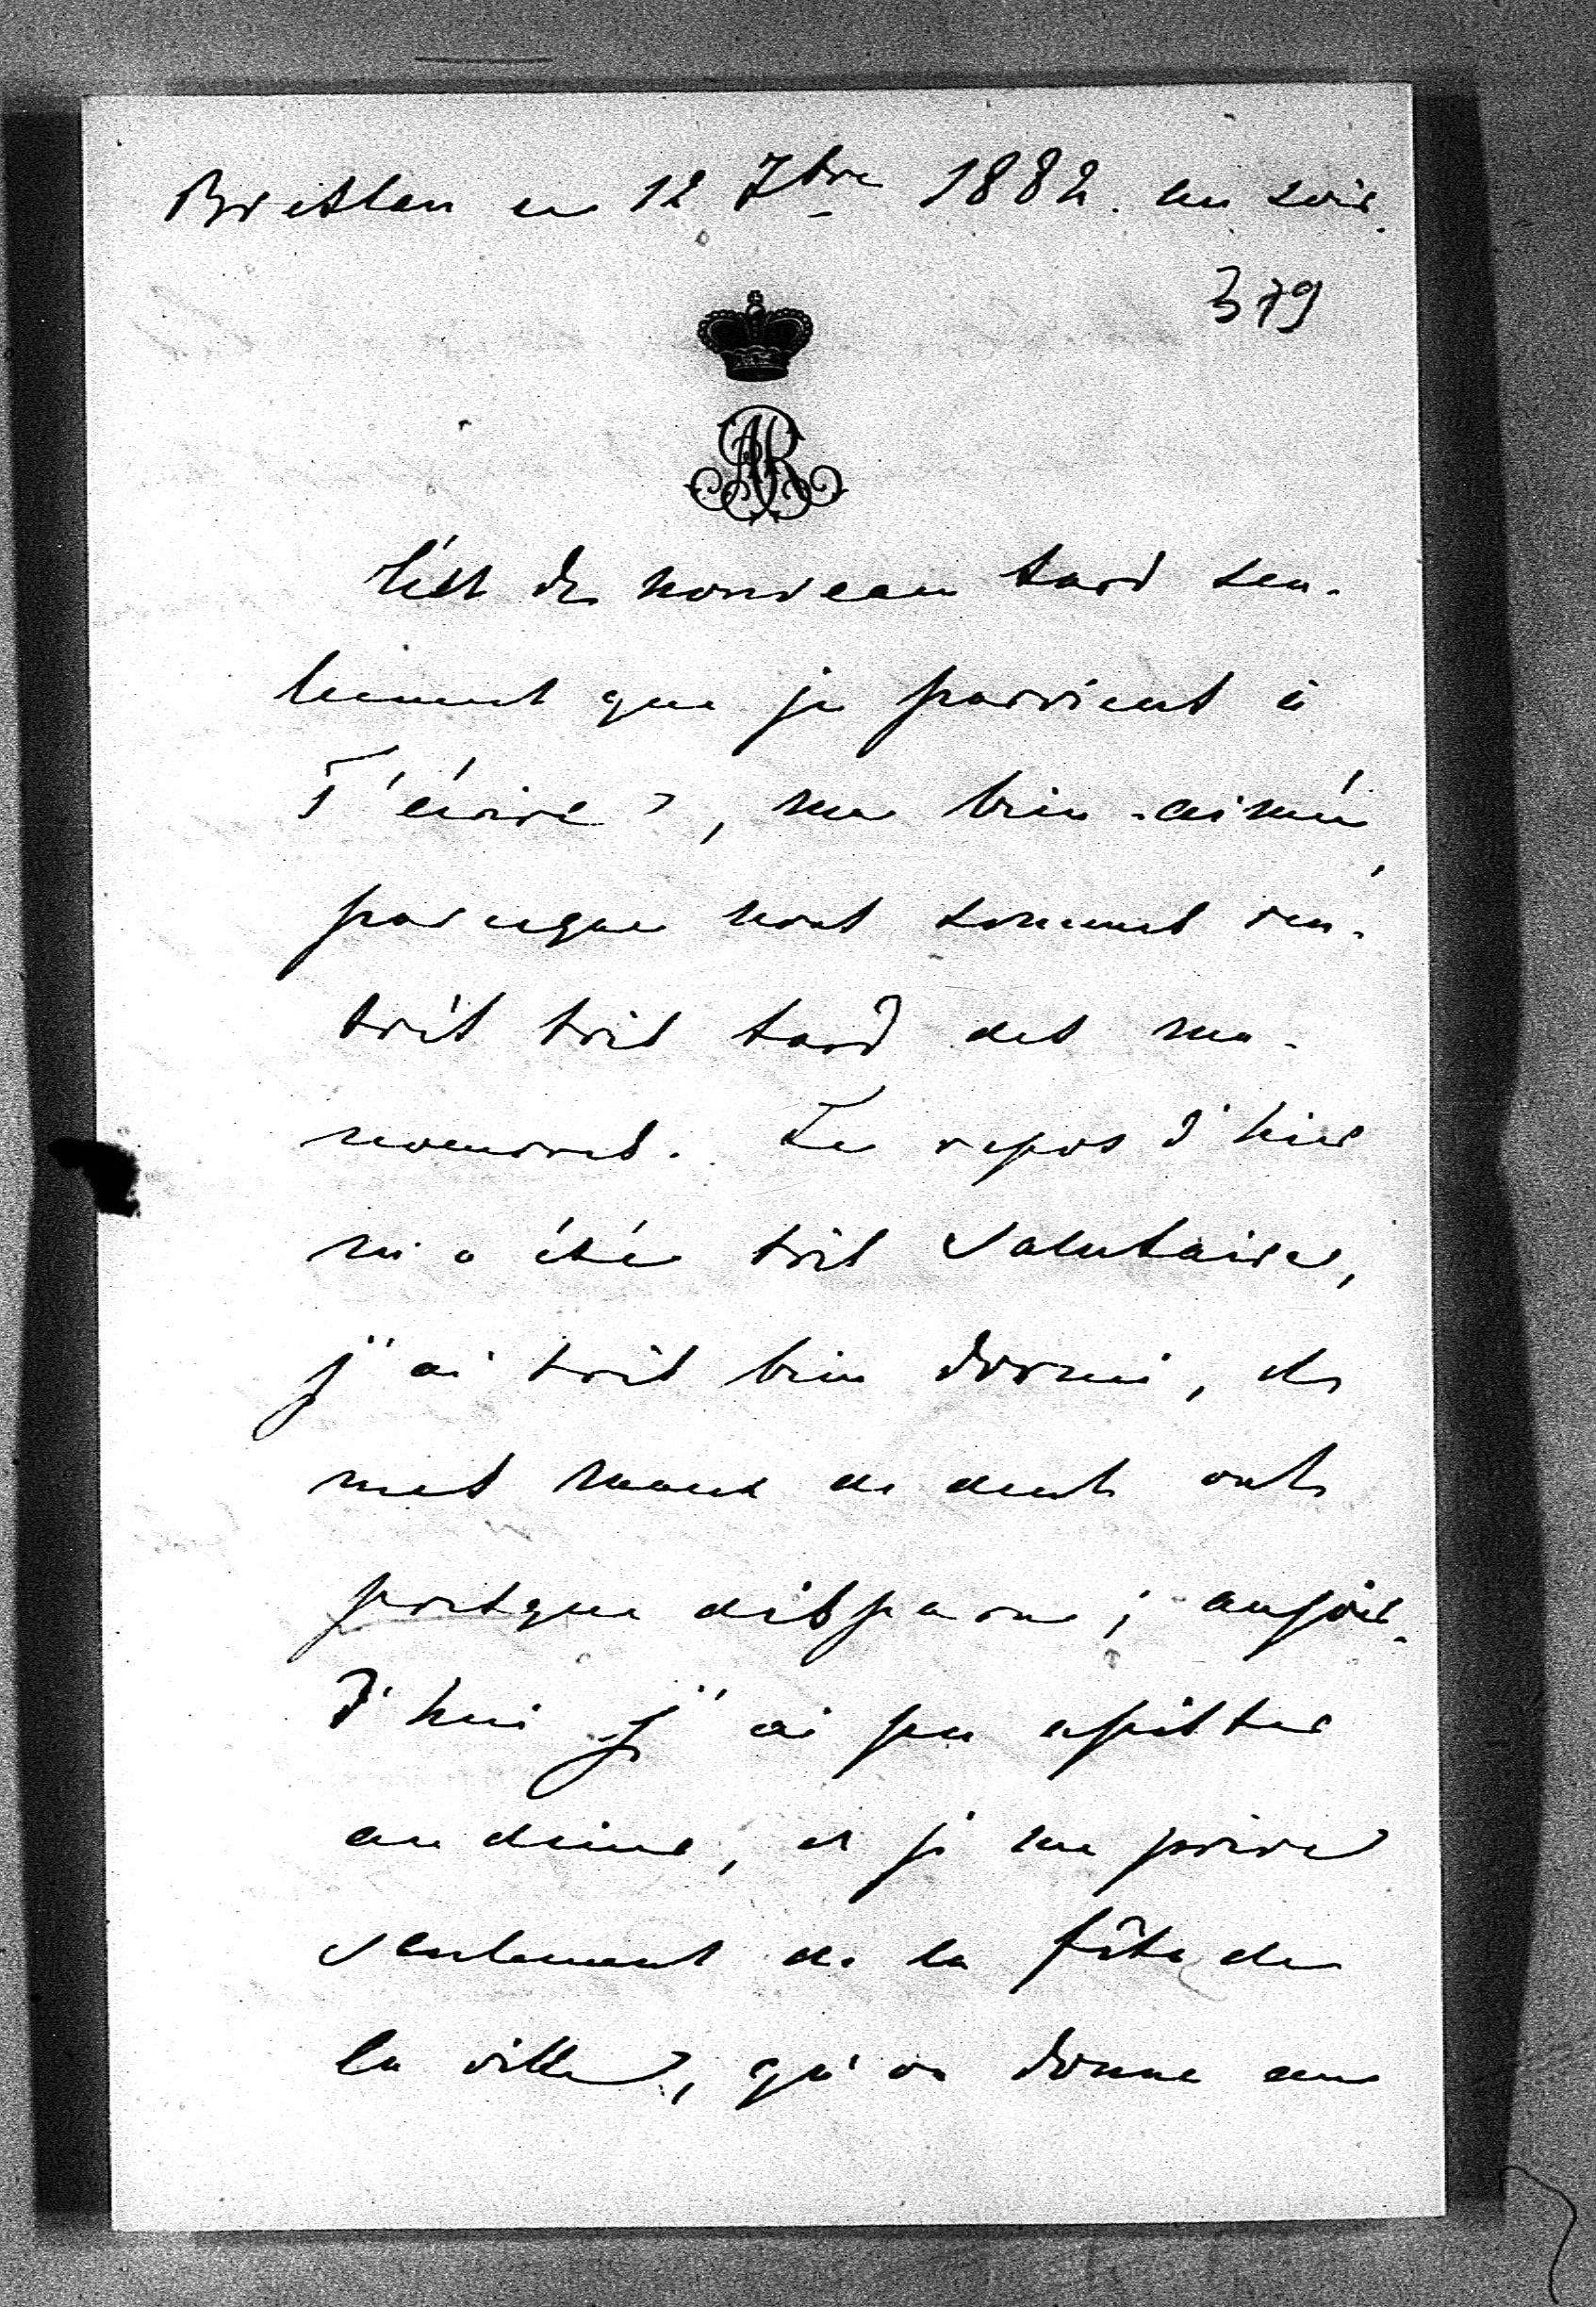 Breslau ce 12 7bre 1882. au soir.
379
AR
C'est de nouveau tard seu-
lement que je parviens à
T'écrire, ma bien-aimée,
parceque nous sommes ren-
trés très tard des ma-
noeuvres. Le repos d'hier
m'a été très salutaire,
j'ai très bien dormi, et
mes maux de dents ont
presque disparu; aujour-
d'hui j'ai pu assister
au diner, et je me prive
seulement de la fête de
la ville, qu'on donne au